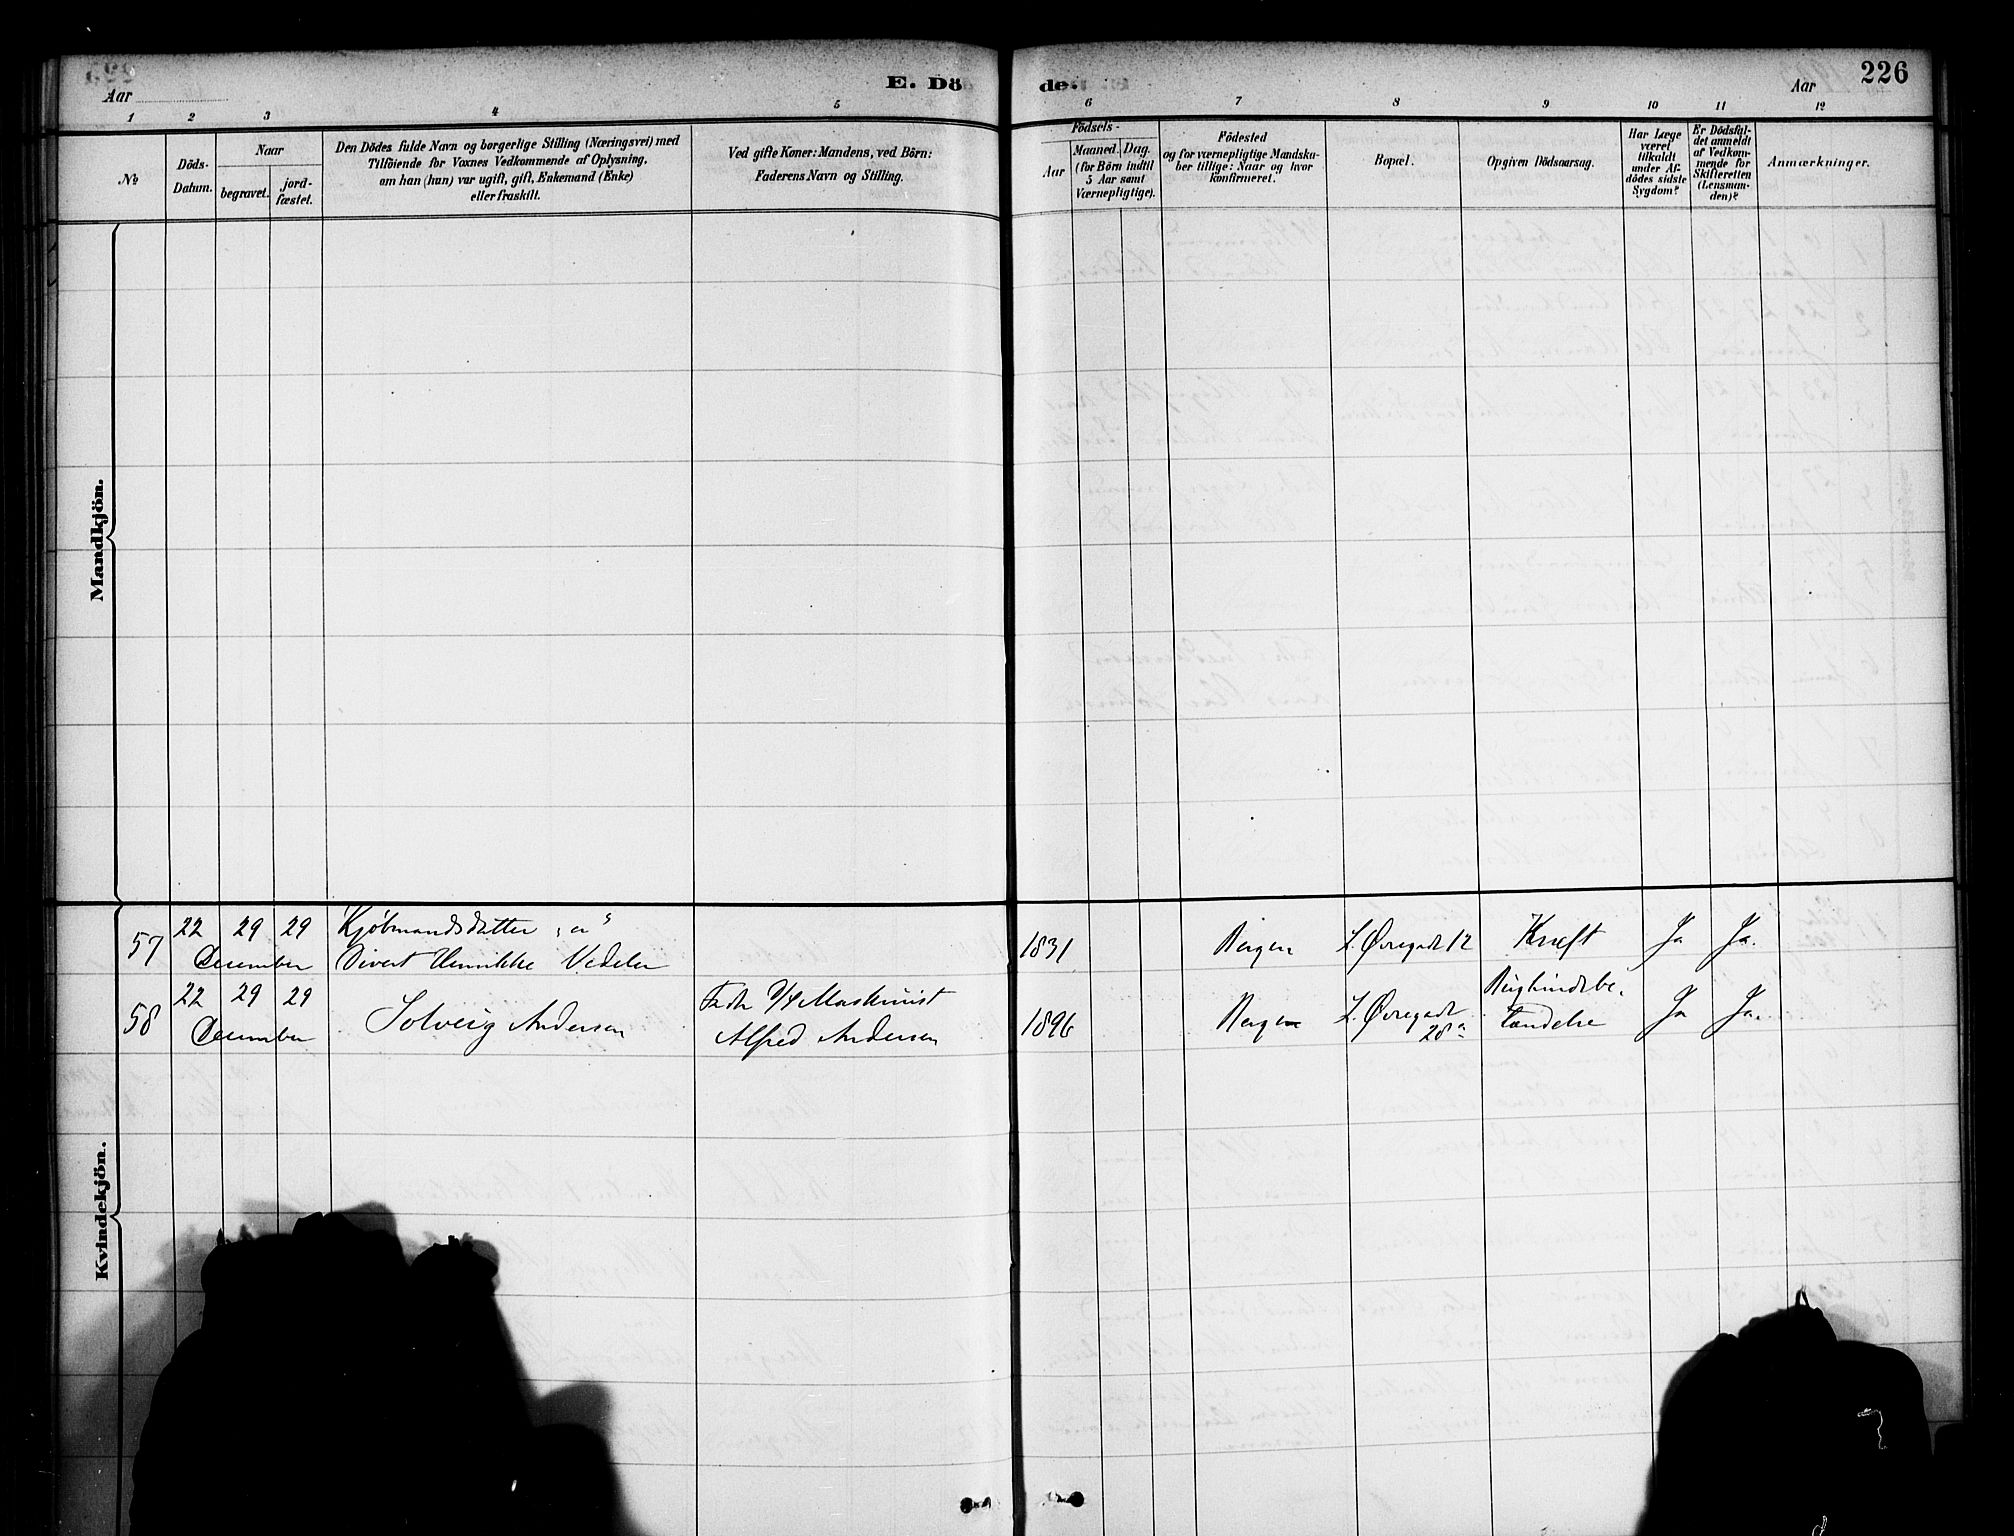 E. Dö
de.
226
Aar
Aar
1 2 3 4 5 6 7 8 9 10 11 12
№
Döds-
Datum.
Naar
begravet.
jord-
fæstet.
Den Dödes fulde Navn og borgerlige Stilling (Næringsvei) med
Tilföiende for Voxnes Vedkommende af Oplysning,
om han (hun) var ugift, gift, Enkemand (Enke)
eller fraskilt.
Ved gifte Koner: Mandens, ved Börn:
Faderens Navn og Stilling.
Födsels-
Aar
Maaned. Dag.
(for Börn indtil
5 Aar samt
Værnepligtige).
Födested
og for værnepligtige Mandska-
ber tillige: Naar og hvor
konfirmeret.
Bopæl.
Opgiven Dödsaarsag.
Har Læge
været
tilkaldt
under Af-
dödes sidste
Sygdom?
Er Dödsfal-
det anmeldt
af Vedkom-
mende for
Skifteretten
(Lensman-
den)?
Anmærkninger.
Mandkjön.
Kvindekjön.
57 22 29 29 Kjøbmandsdatter 1831 Bergen L. Øvregade 12 Kræft Ja Ja.
December Divert Henrikke Vedeler
58 22 29 29 Solveig Andersen Fadr Maskinist 1896 Bergen L. Øvregade 28a Ja Ja.
December Alfred Andersen tændelse